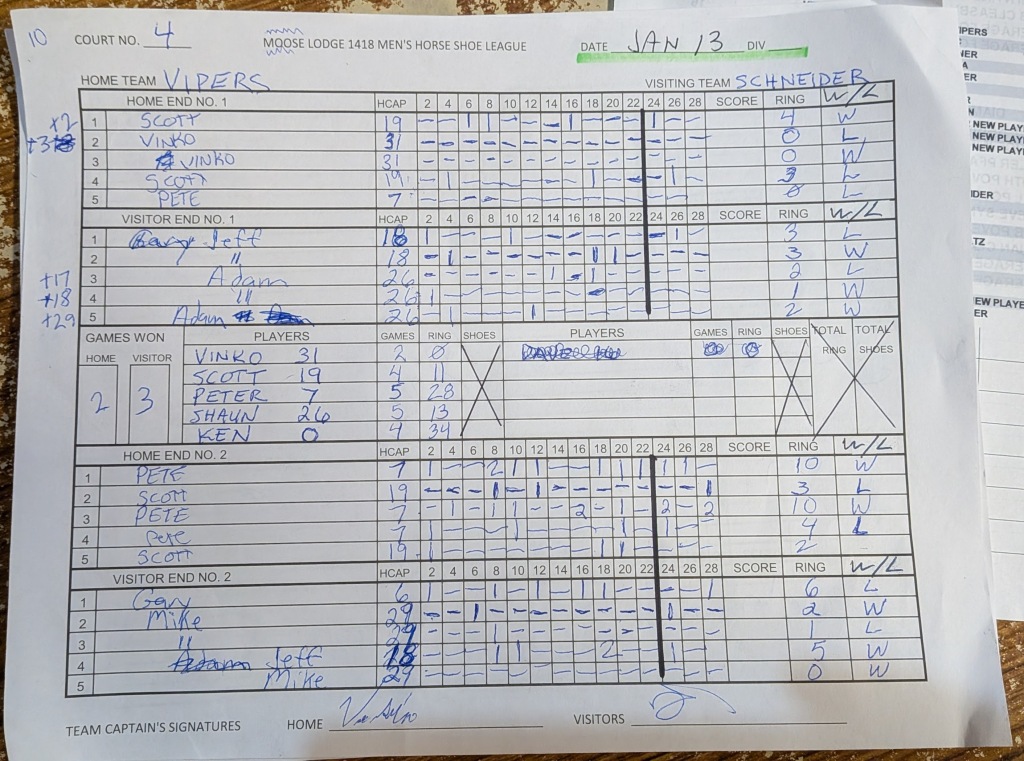 10 COURT NO. 4 MOOSE LODGE 1418 MEN'S HORSE SHOE LEAGUE DATE JAN 13 DIV
HOME TEAM VIPERS VISITING TEAM SCHNEIDER
HOME END NO. 1 HCAP 2 4 6 8 10 12 14 16 18 20 22 24 26 28 SCORE RING W/L
+2 1 SCOTT 19 – – 1 1 – – – 1 – – – 1 – – 4 W
+3 2 VINKO 31 – – – – – – – – – – – – – – 0 L
3 VINKO 31 – – – – – – – – – – – – – – 0 W
4 SCOTT 19 – 1 – – – – – – 1 – – – 1 – 3 L
5 PETE 7 – – – – – – – – – – – – – 0 L
VISITOR END NO. 1 HCAP 2 4 6 8 10 12 14 16 18 20 22 24 26 28 SCORE RING W/L
1 Jeff 18 1 – – – 1 – – – – – – – 1 – 3 L
2 " 18 – 1 – – – – – – 1 1 – – – – 3 W
+17 3 Adam 26 – – – – – – 1 – 1 – – – – – 2 L
+18 4 " 26 1 – – – – – – – – – – – – – 1 W
+29 5 Adam 26 – 1 – – – 1 – – – – – – – – 2 W
GAMES WON PLAYERS GAMES RING SHOES PLAYERS GAMES RING SHOES TOTAL RING TOTAL SHOES
HOME VISITOR
2 3
VINKO 31 2 0
SCOTT 19 4 11
PETER 7 5 28
SHAUN 26 5 13
KEN 0 4 34
HOME END NO. 2 HCAP 2 4 6 8 10 12 14 16 18 20 22 24 26 28 SCORE RING W/L
1 PETE 7 1 – – 2 1 1 – – 1 1 1 1 1 – 10 W
2 SCOTT 19 – – – 1 – 1 – – – – – – – 1 3 L
3 PETE 7 – 1 – 1 1 – – 2 – 1 – 2 – 2 10 W
4 Pete 7 1 – – – 1 – – – – 1 – 1 – – 4 L
5 SCOTT 19 1 – – – – – – – 1 1 – – – – 2
VISITOR END NO. 2 HCAP 2 4 6 8 10 12 14 16 18 20 22 24 26 28 SCORE RING W/L
1 Gary 6 1 – – 1 – 1 – 1 1 – – – – 1 6 L
2 Mike 29 – – 1 – – – – – – – – 1 – – 2 W
3 " 29 – – – 1 – – – – – – – – – – 1 L
4 Jeff 18 – – – 1 1 – – – 2 – – 1 – – 5 W
5 Mike 29 – – – – – – – – – – – – – – 0 W
TEAM CAPTAIN'S SIGNATURES HOME VISITORS
NEW PLAY
NEW PLAY
NEW PLAY